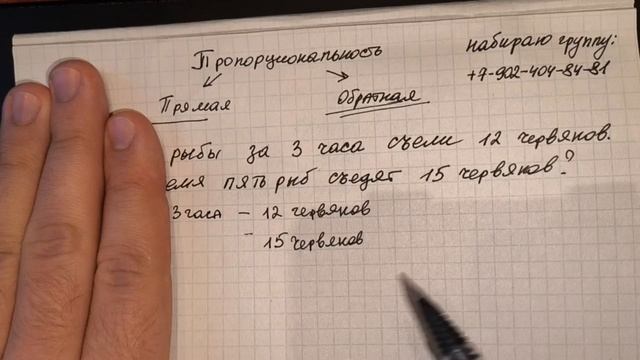 Пропорциональность
набираю группу:
+7-902-404-84-81
Прямая
Обратная
рыбы за 3 часа съели 12 червяков.
емя пять рыб съедят 15 червяков?
3 часа - 12 червяков
- 15 червяков